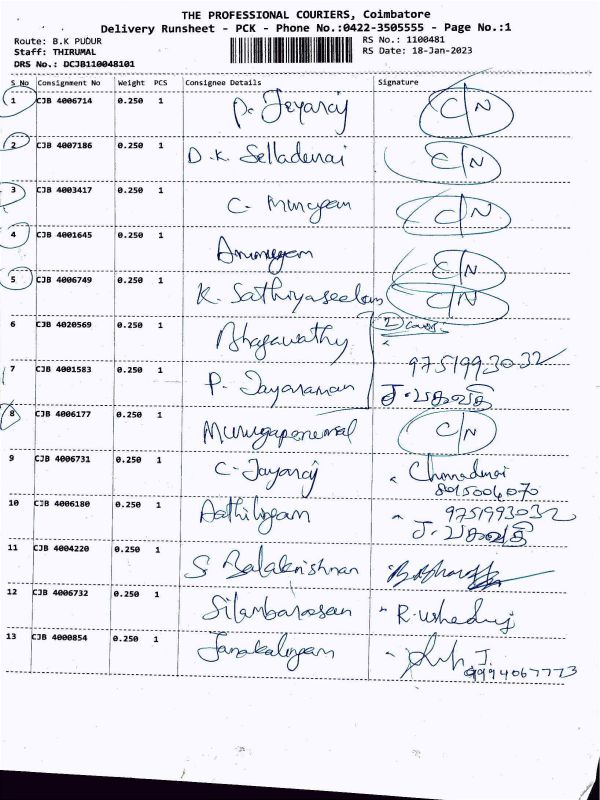 THE PROFESSIONAL COURIERS, Coimbatore
Delivery Runsheet - PCK - Phone No.:0422-3505555 - Page No.:1
Route: B.K PUDUR RS No.: 1100481
Staff: THIRUMAL RS Date: 18-Jan-2023
DRS No.: DCJB110048101
S No Consignment No Weight PCS Consignee Details Signature
1 CJB 4006714 0.250 1 P. Jeyaraj C/N
2 CJB 4007186 0.250 1 D.K. Selladurai C/N
3 CJB 4003417 0.250 1 C. Murugan C/N
4 CJB 4001645 0.250 1 Arumugam C/N
5 CJB 4006749 0.250 1 K. Sathiyaseelan C/N
6 CJB 4020569 0.250 1 Bhagawathy 2 Cover
9751993032
7 CJB 4001583 0.250 1 P. Jayaraman J. பகவதி
8 CJB 4006177 0.250 1 Murugaperumal C/N
9 CJB 4006731 0.250 1 C. Jayaraj Chinnadurai
8015004070
10 CJB 4006180 0.250 1 Aathilingam 9751993032
J. பகவதி
11 CJB 4004220 0.250 1 S Balakrishnan
12 CJB 4006732 0.250 1 Silambarasan
13 CJB 4000854 0.250 1 Janakalingam
9994067773